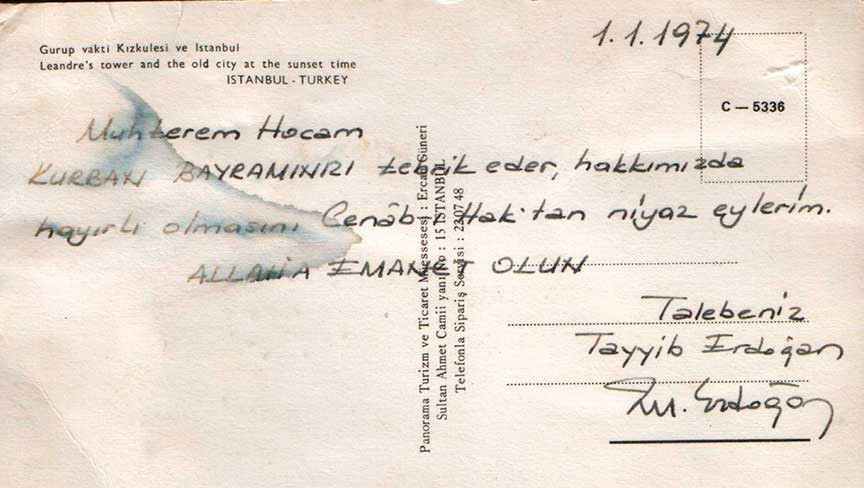 Gurup vakti Kızkulesi ve Istanbul
Leandre's tower and the old city at the sunset time
ISTANBUL - TURKEY
1.1.1974
C — 5336
Muhterem Hocam
KURBAN BAYRAMINIZI tebrik eder, hakkımızda
hayırlı olmasını Cenâb-ı Hak'tan niyaz eylerim.
ALLAHA EMANET OLUN
Talebeniz
Tayyib Erdoğan
Erdoğan
Panorama Turizm ve Ticaret Müessesesi : Ercan Güneri
Sultan Ahmet Camii yanı No : 15 İSTANBUL
Telefonla Sipariş Servisi : 22 07 48